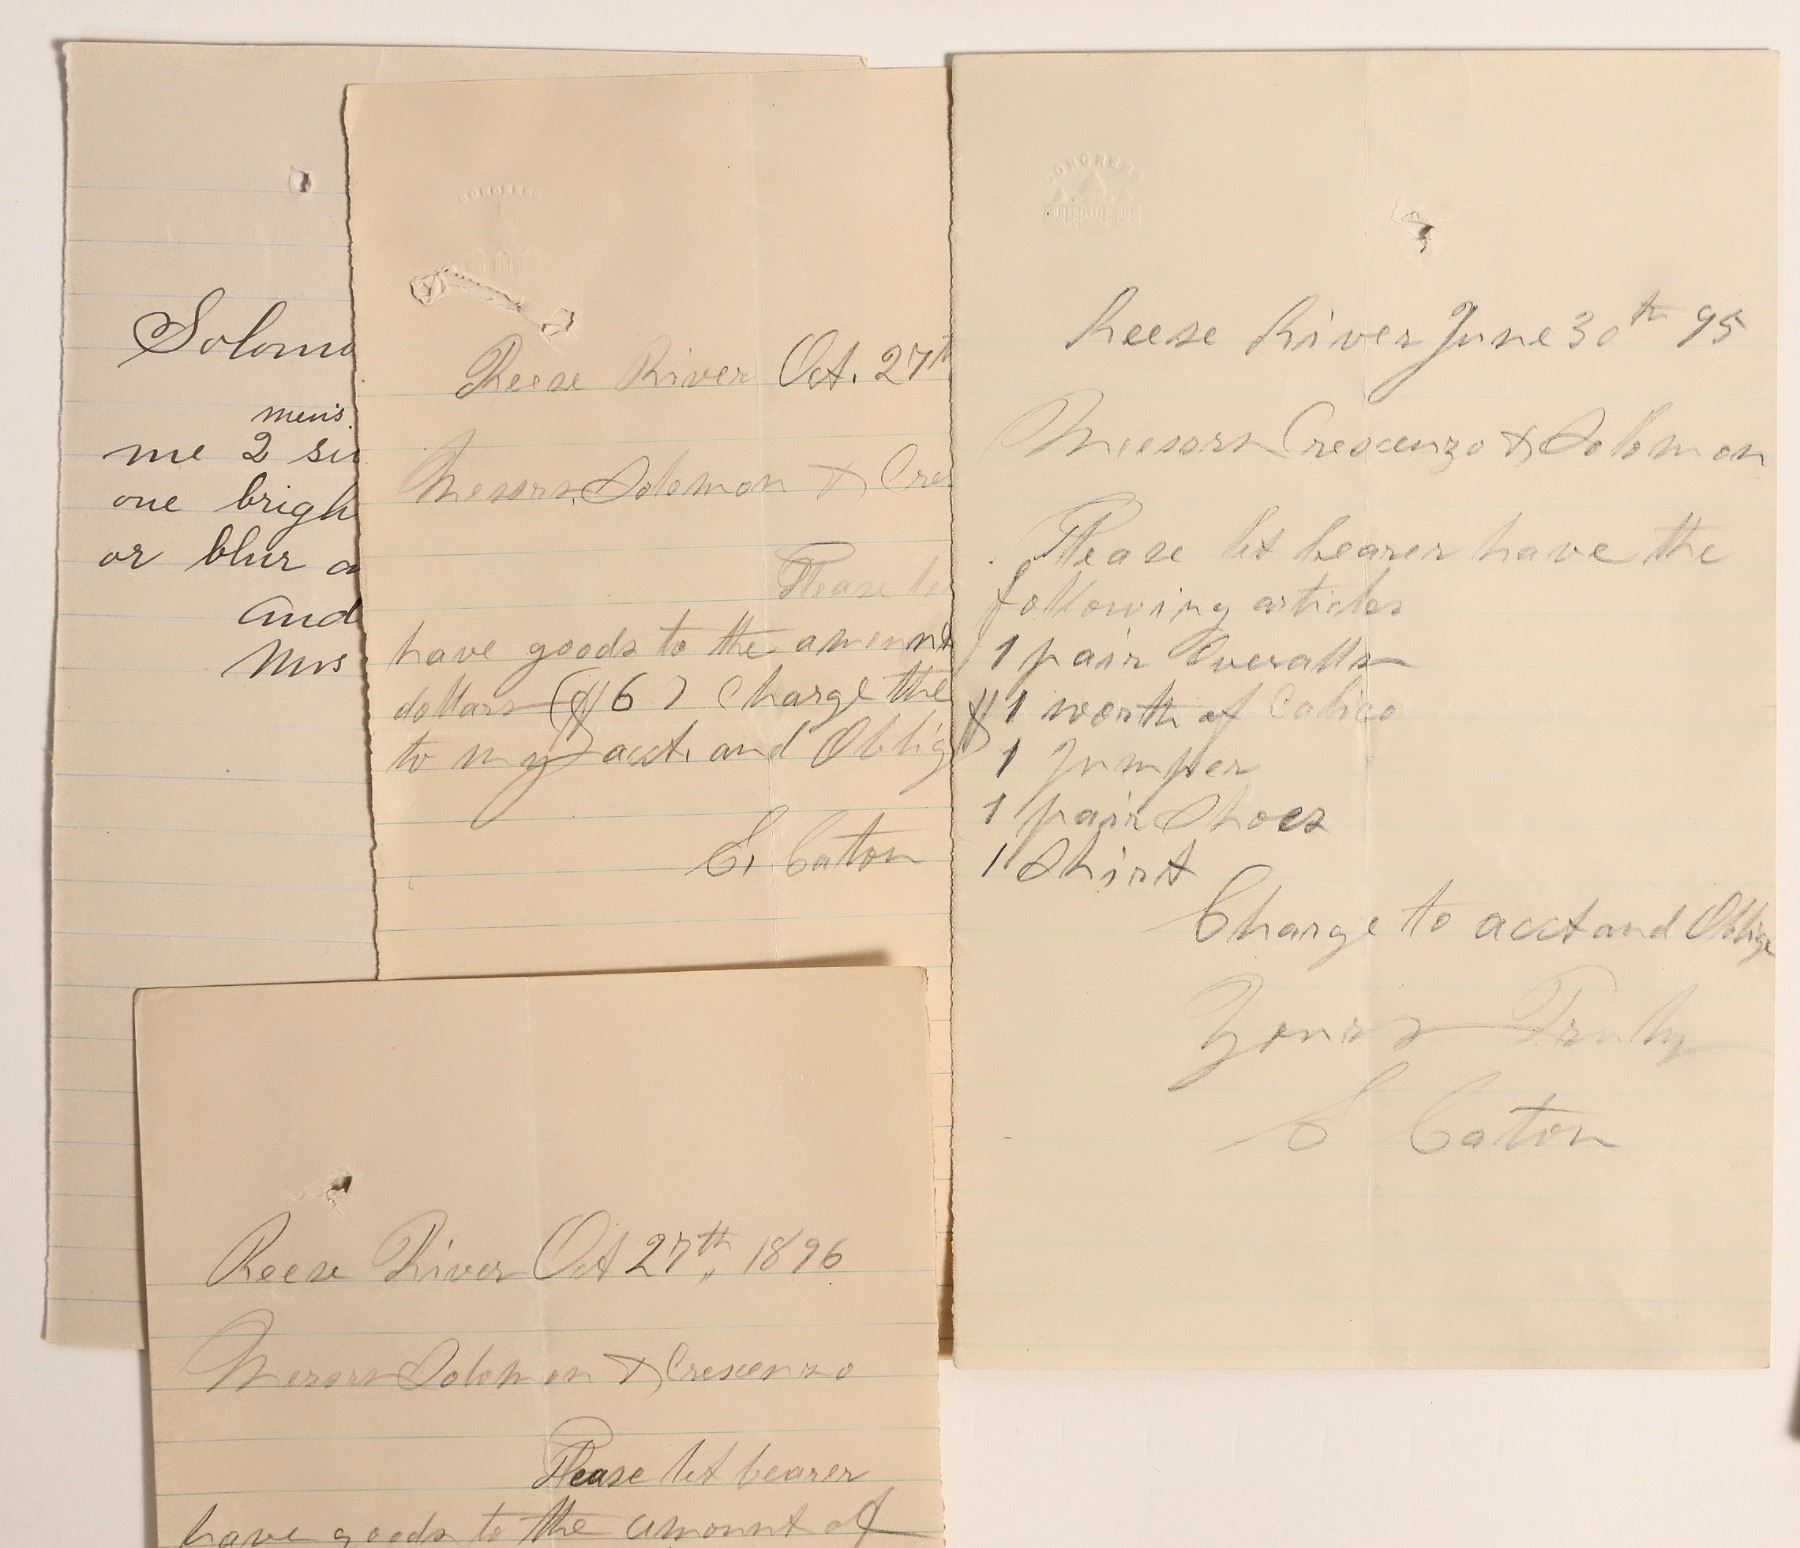 Solomo
mens
me 2 su
one brigh
or blur a
and
Mrs
Reese River Oct. 27th
Messrs Solomon & Cres
Please le
have goods to the amount
dollars ($6) Charge the
to my acct. and Oblig
E. Caton
Reese River June 30th 95
Messrs Crescenzo & Solomon
Please let bearer have the
following articles
1 pair Overalls
$1 worth of Calico
1 Jumper
1 pair Shoes
1 Shirt
Charge to acct and Oblige
Yours Truly
Caton
CONGRESS
Reese River Oct 27th, 1896
Messrs Solomon & Crescenzo
Please let bearer
have goods to the amount of